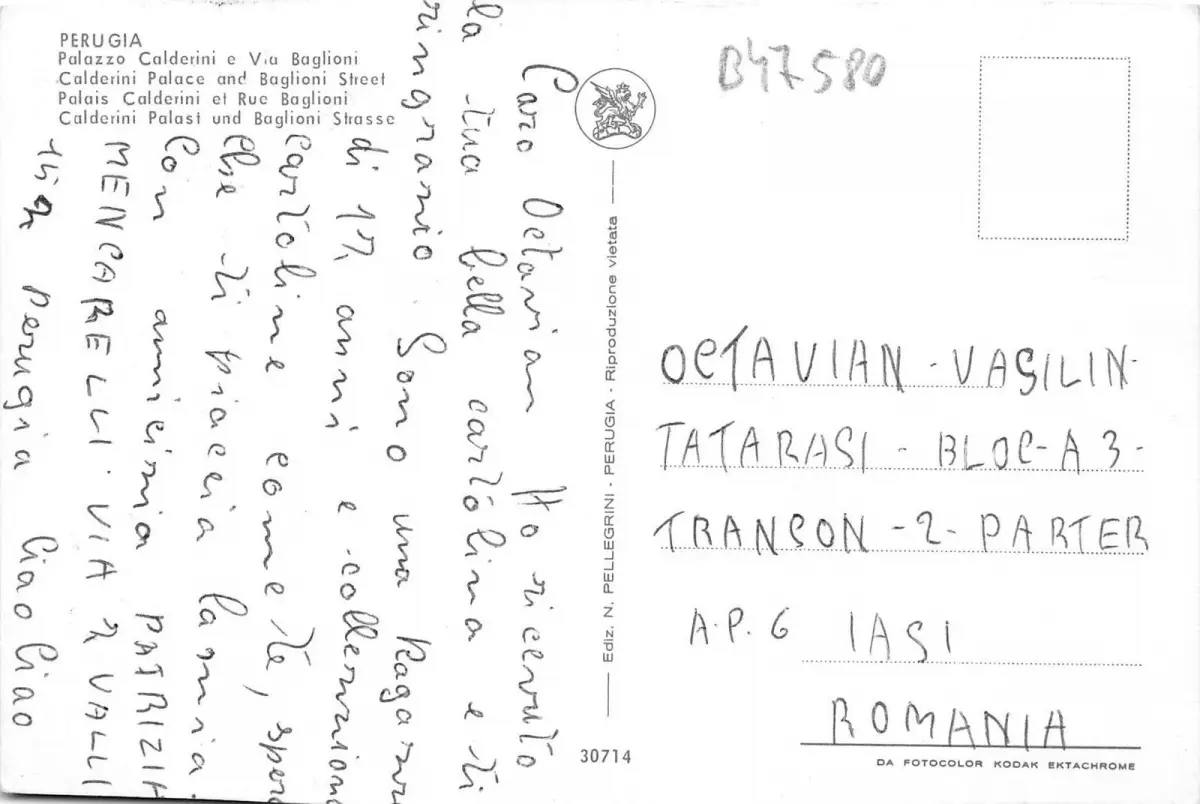 PERUGIA
Palazzo Calderini e Via Baglioni
Calderini Palace and Baglioni Street
Palais Calderini et Rue Baglioni
Calderini Palast und Baglioni Strasse
Caro Octavian Ho ricevuto
la tua bella cartolina e ti
ringrazio Sono una Ragazza
di 17 anni e collezziono
cartoline come te, spero
che ti piaccia la mia.
Con amicizia PATRIZIA
MENCARELLI. VIA 2 VALLI
Perugia Ciao Ciao
Ediz. N. PELLEGRINI - PERUGIA - Riproduzione vietata
30714
B47580
OCTAVIAN - VASILIN-
TATARASI - BLOC-A 3-
TRANSON -2- PARTER
A.P. 6 IASI
ROMANIA
DA FOTOCOLOR KODAK EKTACHROME